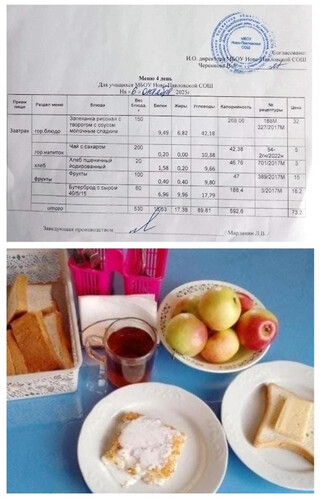 Согласовано:
И.О. директора МБОУ Ново-Павловской СОШ
МБОУ
Ново-Павловская
СОШ
Меню 4 день
Для учащихся МБОУ Ново-Павловской СОШ
2025г.
Прием пищи Раздел меню Блюда Вес блюда г Белки Жиры Углеводы Калорийность № рецептуры Цена
Завтрак гор.блюдо Запеканка рисовая с творогом с соусом молочным сладким 150 9,49 6,82 42,18 268.00 32
гор.напиток Чай с сахаром 200 0,20 0.00 10,38 42,38 54-2гн/2022н 5
хлеб Хлеб пшеничный йодированный 20 1,58 0,20 9,66 46,76 701/2017М 3
фрукты Фрукты 100 0,40 0,40 9,80 47 389/2017М 15
Бутерброд с сыром 40/5/15 60 6,96 9,96 17,79 188,4 3/2017М 18.2
итого 530 17,38 89,81 592,6 73.2
Заведующая производством / Марданян Л.В. /